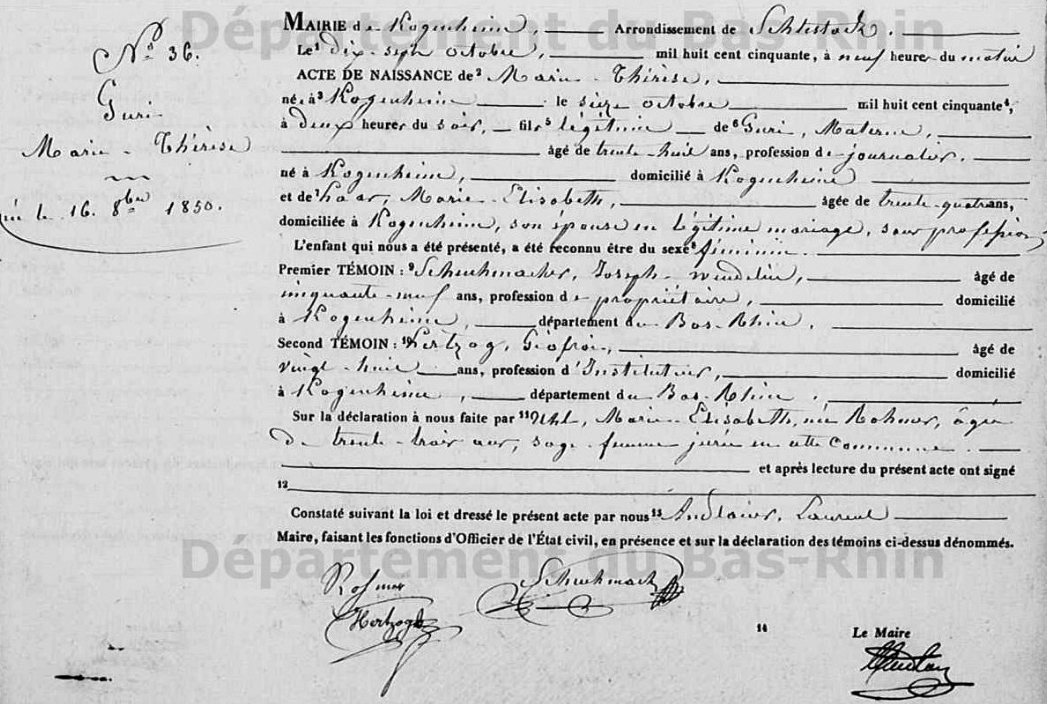 Département du Bas-Rhin
N.º 36.
Guri
Marie-Thérèse
née le 16. 8bre 1850.
MAIRIE de Kogenheim, Arrondissement de Schlestadt.
Le¹ dix-sept octobre, mil huit cent cinquante, à neuf heures du matin
ACTE DE NAISSANCE de² Marie-Thérèse,
née à³ Kogenheim le seize octobre mil huit cent cinquante⁴,
à deux heures du soir, fils⁵ légitime de⁶ Guri, Materne,
âgé de trente-huit ans, profession de journalier,
né à Kogenheim, domicilié à Kogenheim
et de⁷ Haar, Marie-Elisabeth, âgée de trente-quatre ans,
domiciliée à Kogenheim, son épouse en légitime mariage, sans profession
L'enfant qui nous a été présenté, a été reconnu être du sexe⁸ féminin.
Premier TÉMOIN : ⁹Schuhmacher, Joseph-Wendelin, âgé de
cinquante-neuf ans, profession de propriétaire, domicilié
à Kogenheim, département du Bas-Rhin,
Second TÉMOIN : ¹⁰Hertzog, Géofroi, âgé de
vingt-huit ans, profession d'Instituteur, domicilié
à Kogenheim, département du Bas-Rhin.
Sur la déclaration à nous faite par ¹¹Uhl, Marie-Elisabeth, née Rohmer, âgée
de trente-trois ans, sage-femme jurée en cette Commune.
et après lecture du présent acte ont signé
12
Constaté suivant la loi et dressé le présent acte par nous¹³ Andlauer, Laurent
Maire, faisant les fonctions d'Officier de l'État civil, en présence et sur la déclaration des témoins ci-dessus dénommés.
Département du Bas-Rhin
Rohmer Schuhmach
Hertzog
14 Le Maire